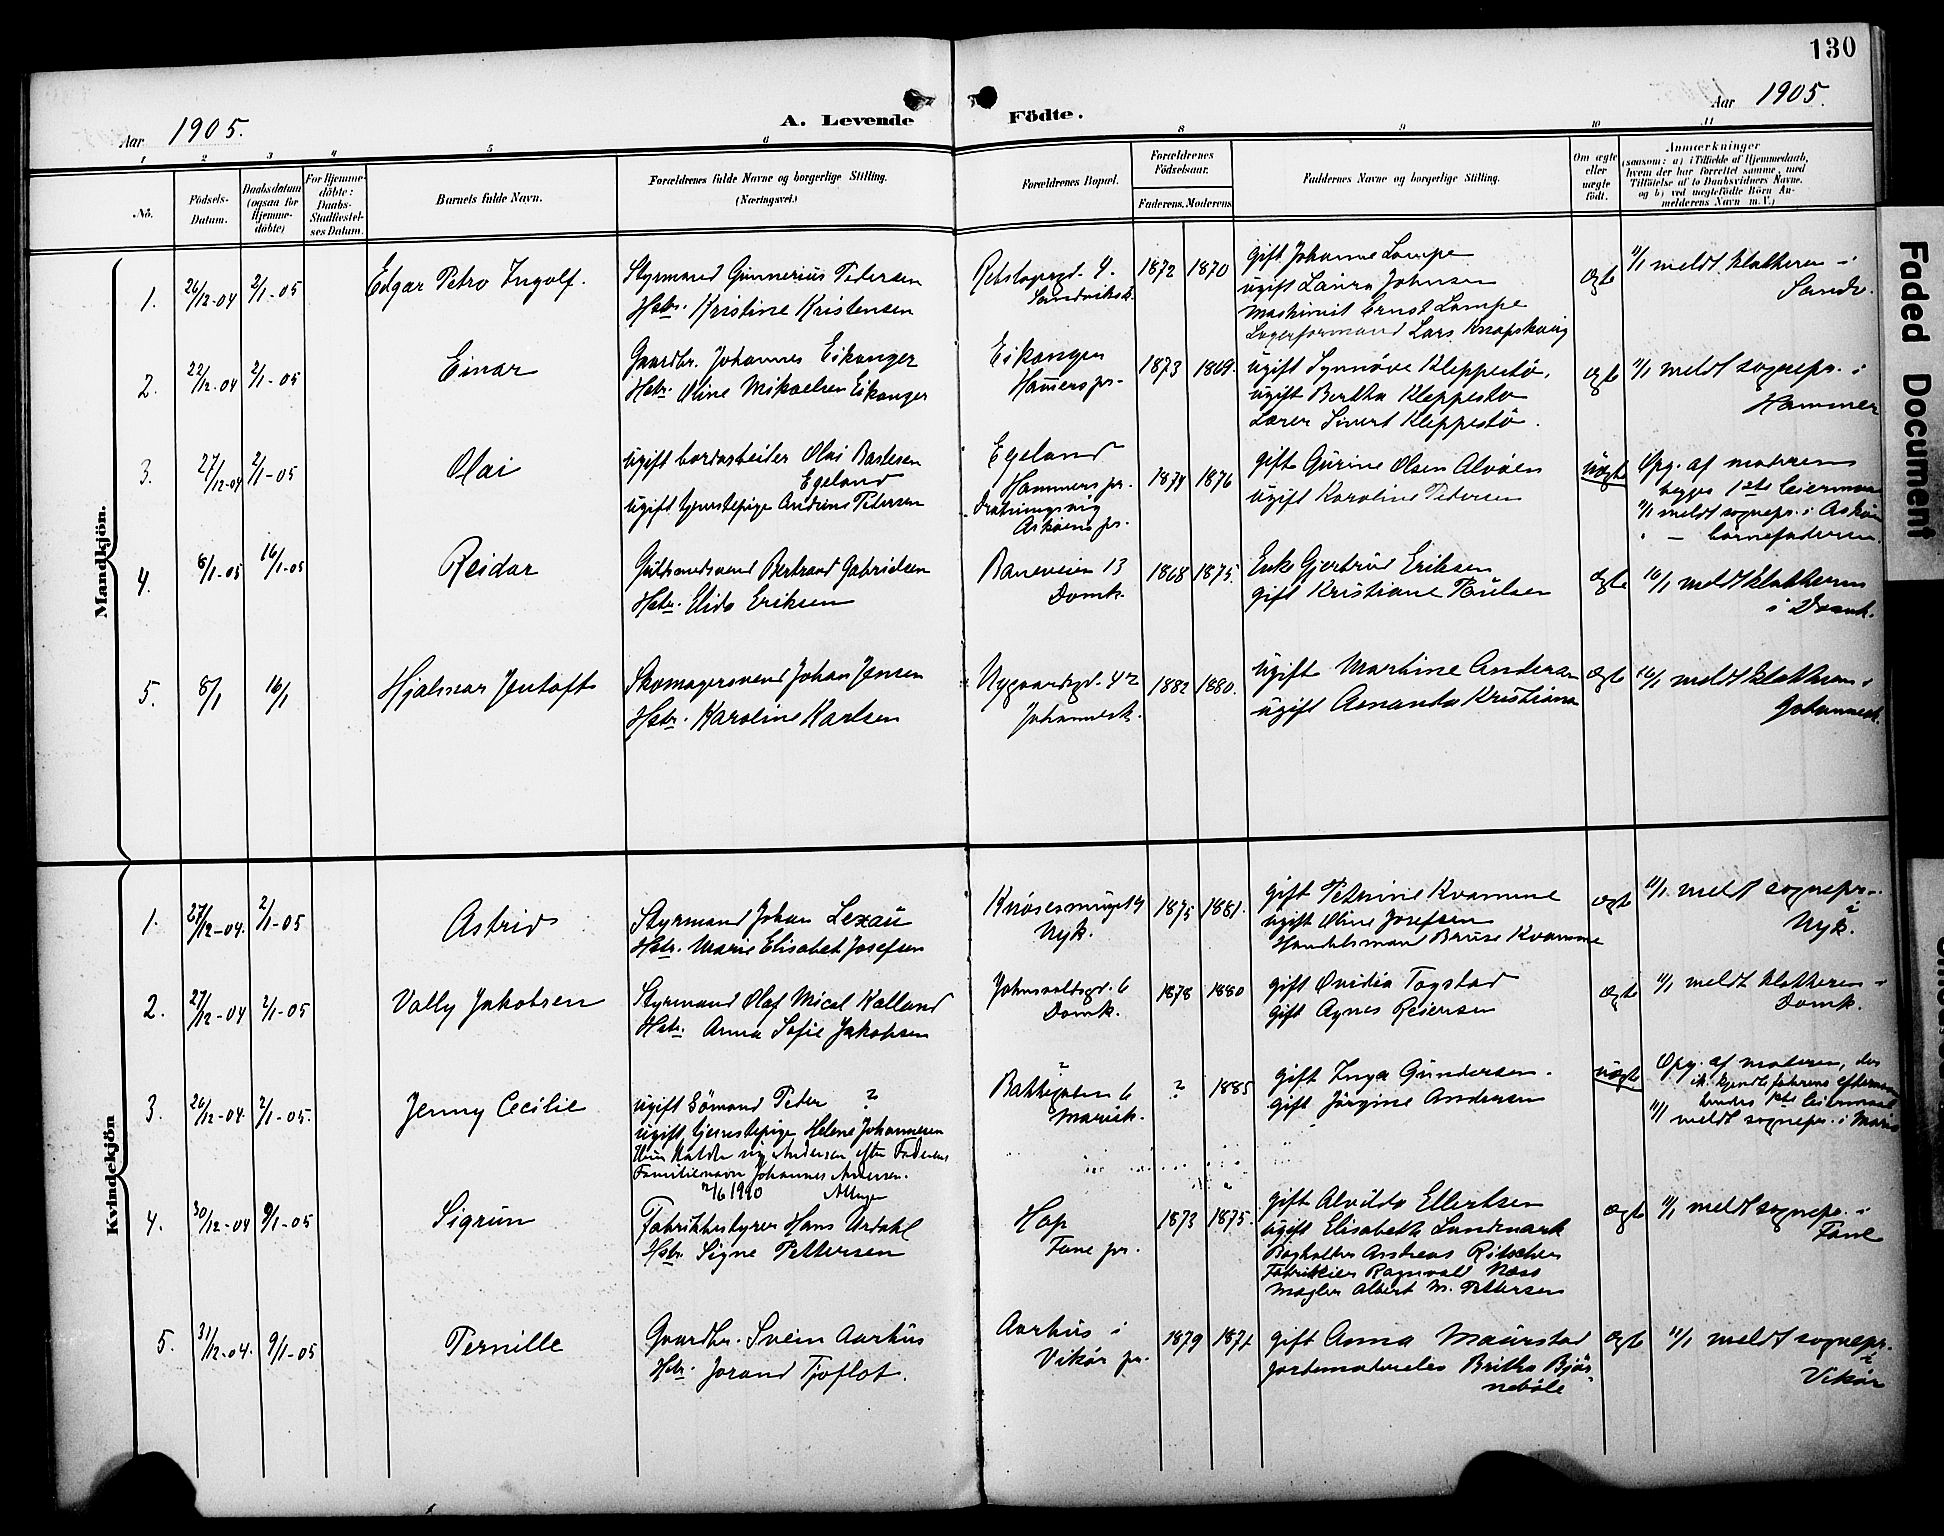 130
Aar 1905.
A. Levende Födte.
Aar 1905.
1 2 3 4 5 6 8 9 10 11
No.
Födsels-Datum.
Daabsdatum (ogsaa for Hjemme-döbte)
For Hjemme-döbte: Daabs-Stadfæstel-ses Datum.
Barnets fulde Navn.
Forældrenes fulde Navne og borgerlige Stilling.
(Næringsvei.)
Forældrenes Bopæl.
Forældrenes Födselsaar.
Faderens. Moderens.
Faddernes Navne og borgerlig Stilling.
Om ægte eller uægte födt.
Anmærkninger
(saasom: a) i Tilfælde af Hjemmedaab,
hvem der har forrettet samme, med
Tilföielse af to Daabsvidners Navne.
og b) ved uægtefödte Börn An-
melderens Navn m. V.)
Mandkjön.
1. 26/12-04 2/1-05 Edgar Petro Ingolf.
Styrmand Gunnerius Petersen
Hstr. Kristine Kristensen
4.
Sandviksk.
1872 1870
gift Johanne Lampe
ugift Laura Johnsen
Maskinist Ernst Lampe
Lagerformand Lars Knapskaug
ægte
11/1 meldt klokkeren i
Sandv.
2. 22/12-04 2/1-05 Einar
Gaardbr. Johannes Eikanger
Hstr. Oline Mikaelsen Eikanger
Eikanger
Hammers pr.
1873 1869.
ugift Synnöve Kleppestö.
ugift Bertha Kleppestö
Lærer Sivert Kleppestö.
ægte
11/1 meldt sognepr. i
Hammer
3. 27/12-04 2/1-05 Olai
ugift bordarbeider Olai
Egeland
ugift tjenestepige Andrine Petersen
Egeland
Hammers pr.
Askøens pr.
1874 1876
gift Gurine Olsen Alvöen
ugift Karoline Petersen
uægte
Opg. af moderen
begges 1ste leiermaal
11/1 meldt sognepr. i Askøen
" — barnefaderen.
4. 8/1-05 16/1-05 Reidar
Guldsmedsvend Bertrand Gabrielsen
Hstr. Elida Eriksen
Baneveien 13
Domk.
1868 1875.
Enke Gjertrud Eriksen
gift Kristiane Paulsen
ægte
16/1 meldt klokkeren
i Domk.
5. 8/1 16/1 Hjalmar Jentoft
Skomagersvend Johan Jensen
Hstr. Karoline Karlsen
Nygaardsgd. 42
Johannesk.
1882 1880.
ugift Martine Andersen
ugift Amanda Kristiansen
ægte
16/1 meldt klokkeren i
Johannesk.
Kvindekjön
1. 27/12-04. 2/1-05 Astrid
Styrmand Johan Lexau
Hstr. Marie Elisabet Josefsen
Nyk.
1875 1881.
gift Petrine Kvamme
ugift Oline Josefsen
Handelsmand Kvamme
ægte
11/1 meldt sognepr. i
Nyk.
2. 27/12-04 2/1-05 Vally Jakobsen
Styrmand Olaf Kalland
Hstr. Anna Sofie Jakobsen
6
Domk.
1878 1880
gift Ovidia Togstad
gift Agnes Reiersen
ægte
11/1 meldt klokkeren i
Domk.
3. 26/12-04. 2/1-05. Jenny Cecilie
ugift Sömand Peder ?
ugift tjenestepige Helene Johannesen
Hun kaldte sig Andersen efter Faderens
Familienavn Johannes Andersen.
1910
6
Mariek.
? 1885
gift Inga Gundersen.
gift Jörgine Andersen
uægte
Opg. af moderen, der
ik. kjendte faderens efternavn
hendes 1ste leiermaal
11/1 meldt sognepr. i Mariek
4. 30/12-04 9/1-05 Sigrun
Fabrikbestyrer Hans Aardahl
Hstr. Signe Pettersen
Hop
Fane pr.
1873 1875.
gift Alvilda Ellertsen
ugift Elisabeth Landmark
Bogholder Andreas
Fabrikeier Ragnvald Næss
Mægler Albert M. Pettersen
ægte
11/1 meldt sognepr. i
Fane
5. 31/12-04. 9/1-05 Pernille
Gaardbr. Svein Aarhus
Hstr. Jorand Tjoflot.
Aarhus i
Vikör pr.
1879
gift Anna Maurstad
jordemoderelev Britha Björ-
nebóle
ægte
11/1 meldt sognepr. i
Vikör
Faded Document